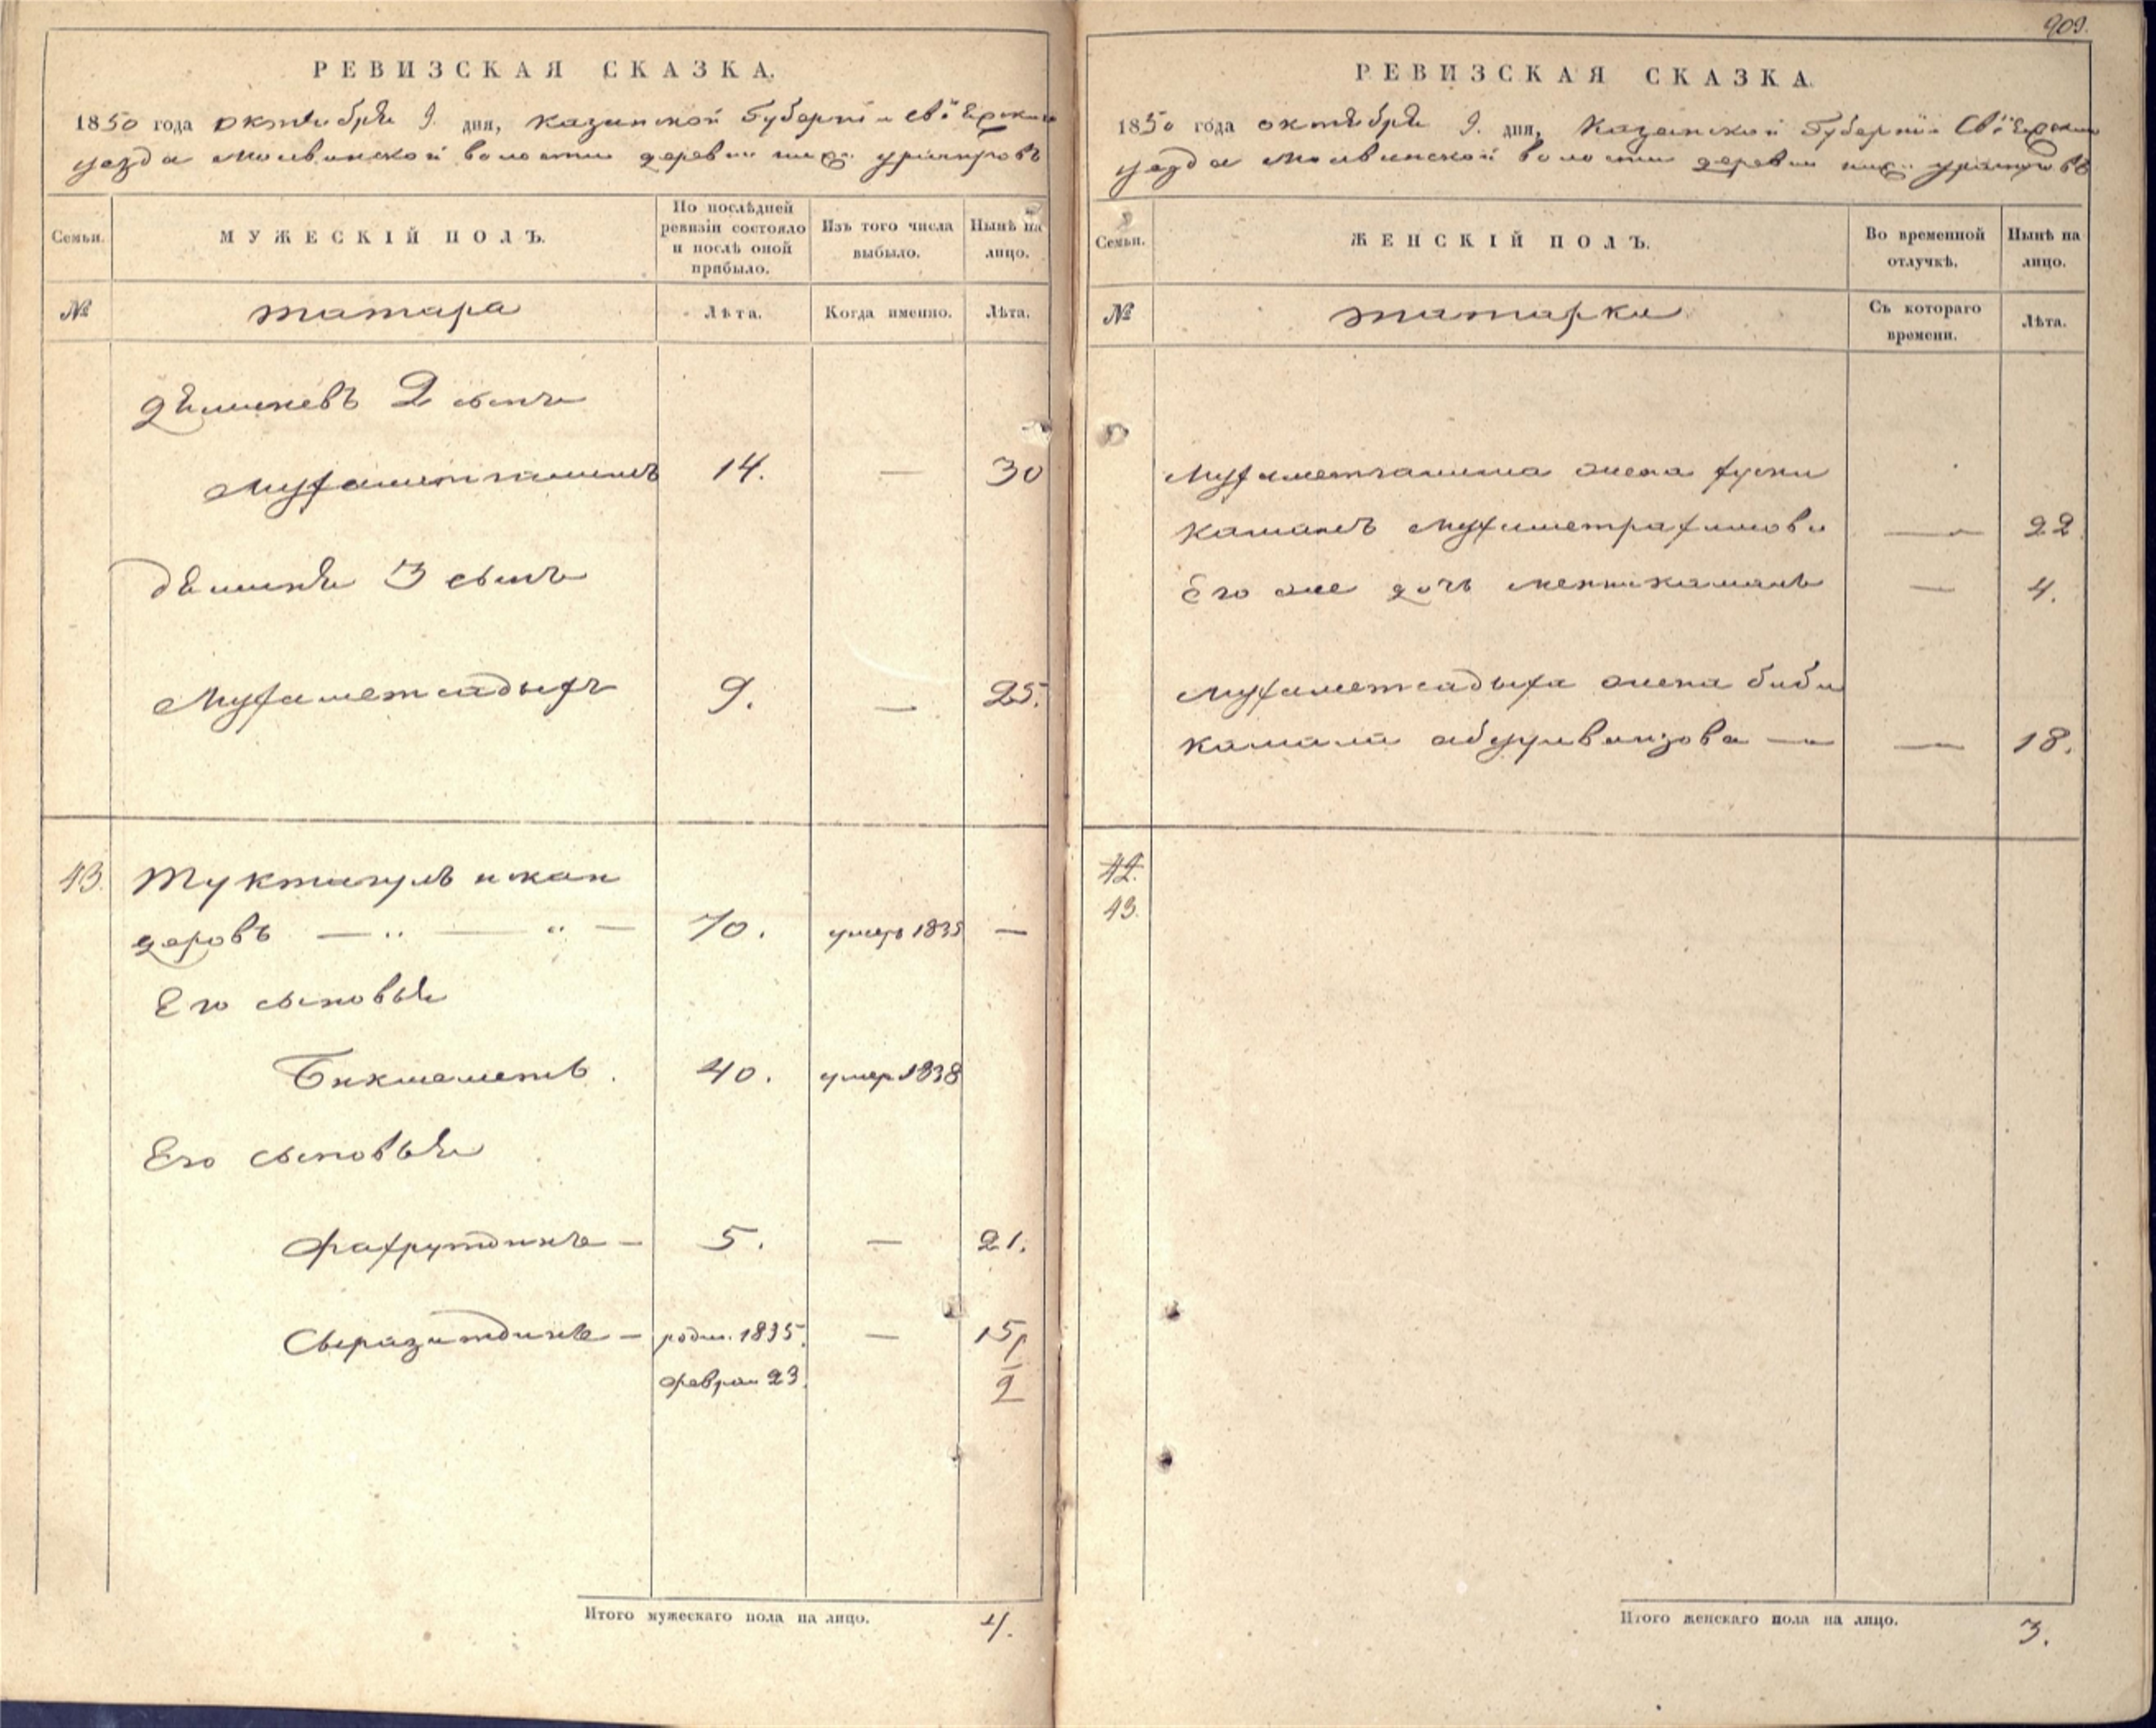 РЕВИЗСКАЯ СКАЗКА.
1850 года октября 9. дня, Казанской Губернiи
уезда волости деревни
Семьи. МУЖЕСКІЙ ПОЛЪ. По послѣдней ревизіи состояло и послѣ оной прибыло. Изъ того числа выбыло. Нынѣ на лицо.
№ татара Лѣта. Когда именно. Лѣта.
2 сынъ
14. — 30
3 сынъ
Мухаметсадыхъ 9. — 25.
43. Туктагулъ искан
деровъ — „ — „ — 70. умеръ 1835 —
Его сыновья
Бикмеметь. 40. умер. 1838
Его сыновья
Фахрутдинъ — 5. — 21.
Сыразитдинъ — родил. 1835. — 15
феврал 23. 2
Итого мужескаго пола на лицо. 4.
909.
РЕВИЗСКАЯ СКАЗКА.
1850 года октября 9. дня, Казанской Губернiи
уезда волости деревни
Семьи. ЖЕНСКІЙ ПОЛЪ. Во временной отлучкѣ. Нынѣ на лицо.
№ татарки Съ котораго времени. Лѣта.
жена
камалъ — 22
Его же дочь — 4.
Мухаметсадыха жена биби
камала — — 18.
42.
43.
Итого женскаго пола на лицо. 3.